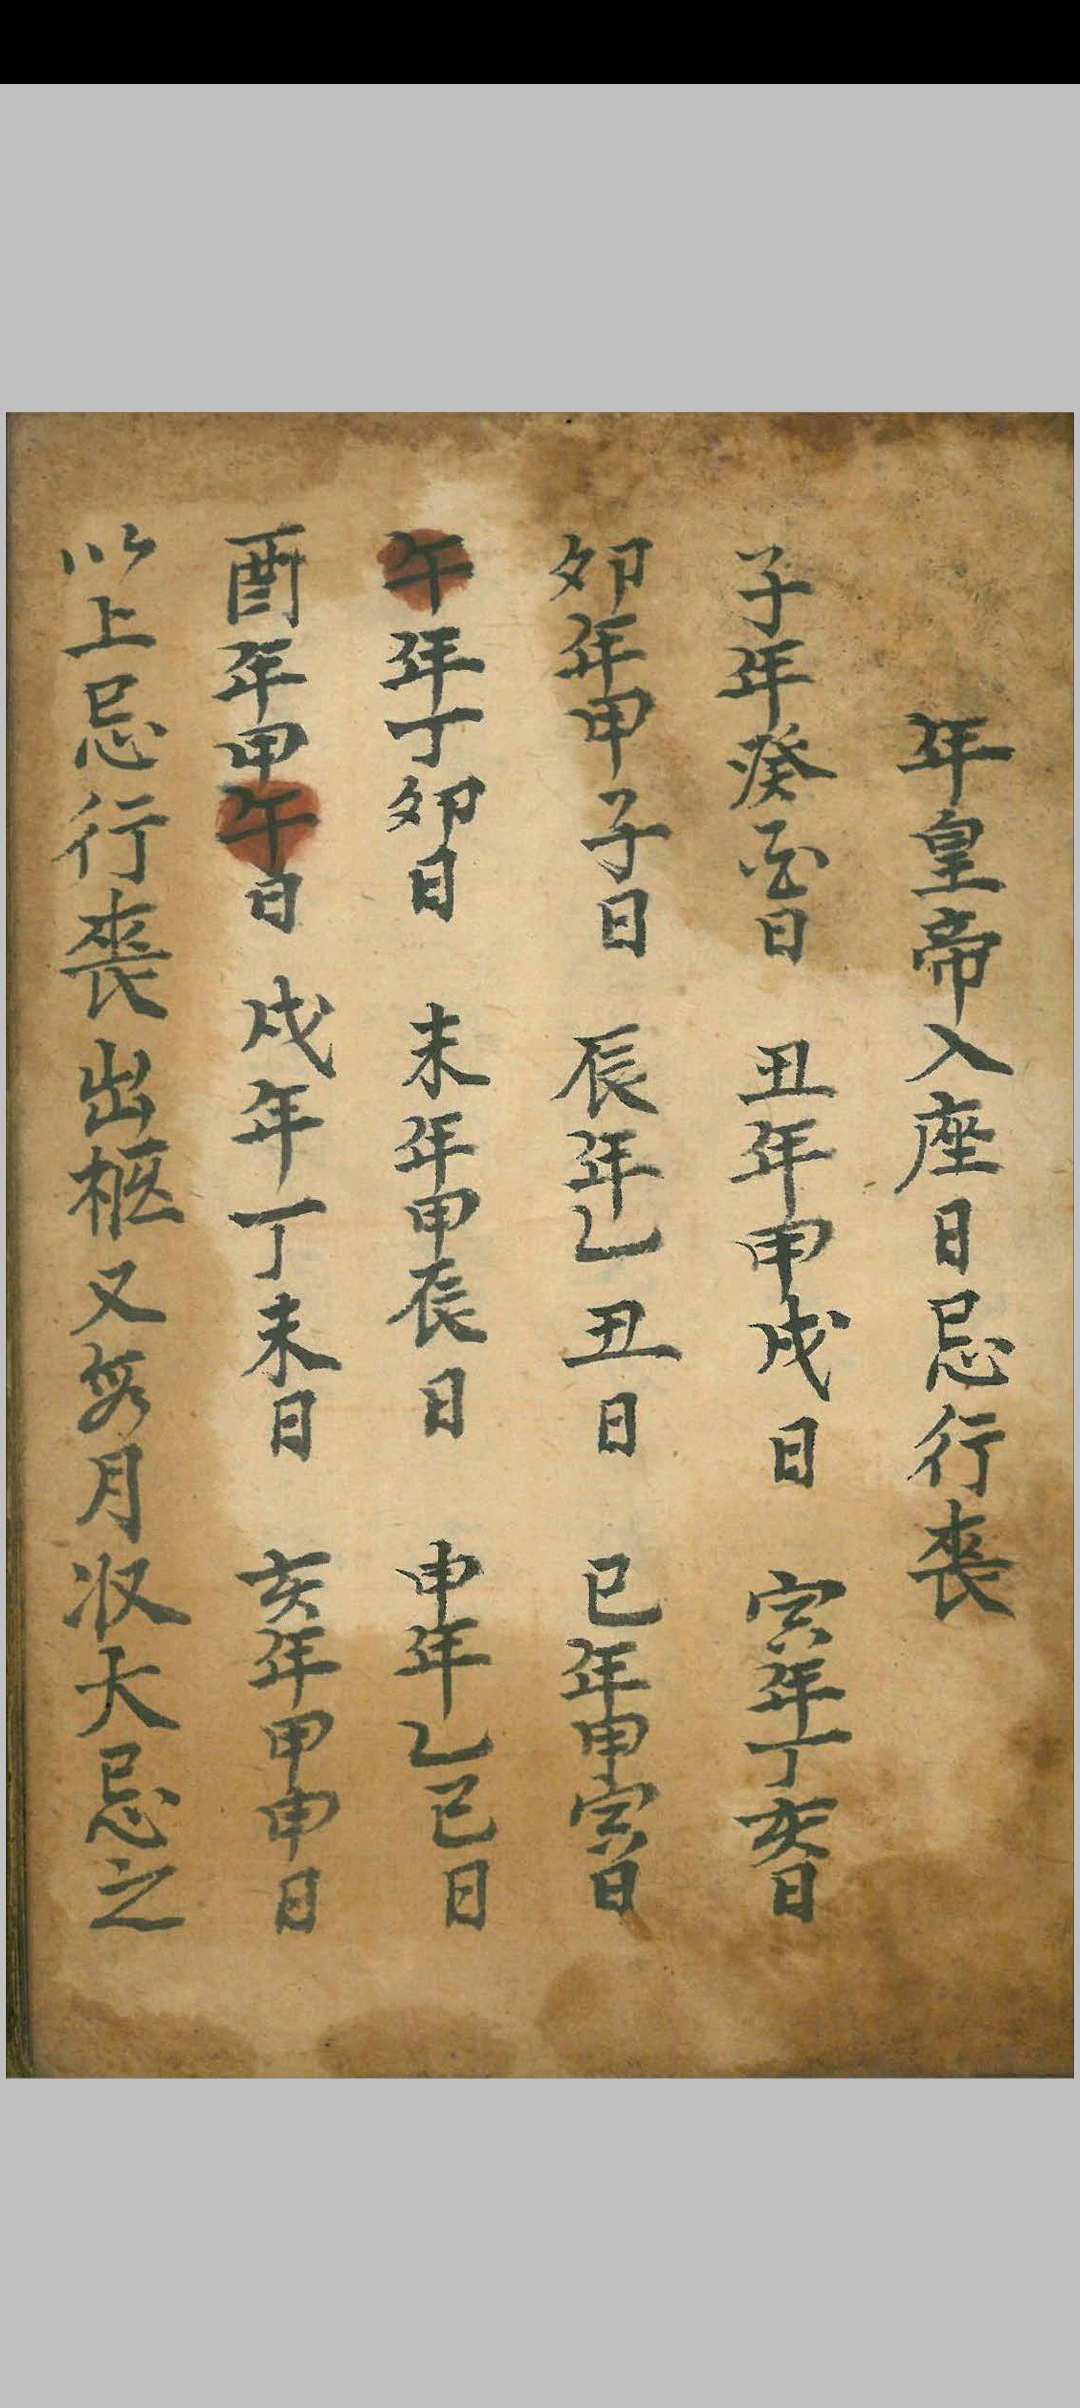 年皇帝入座日忌行喪
子年癸酉日 丑年甲戌日 寅年丁亥日
卯年甲子日 辰年乙丑日 巳年甲寅日
午年丁卯日 未年甲辰日 申年乙巳日
酉年甲午日 戌年丁未日 亥年甲申日
以上忌行喪出柩又月収大忌之